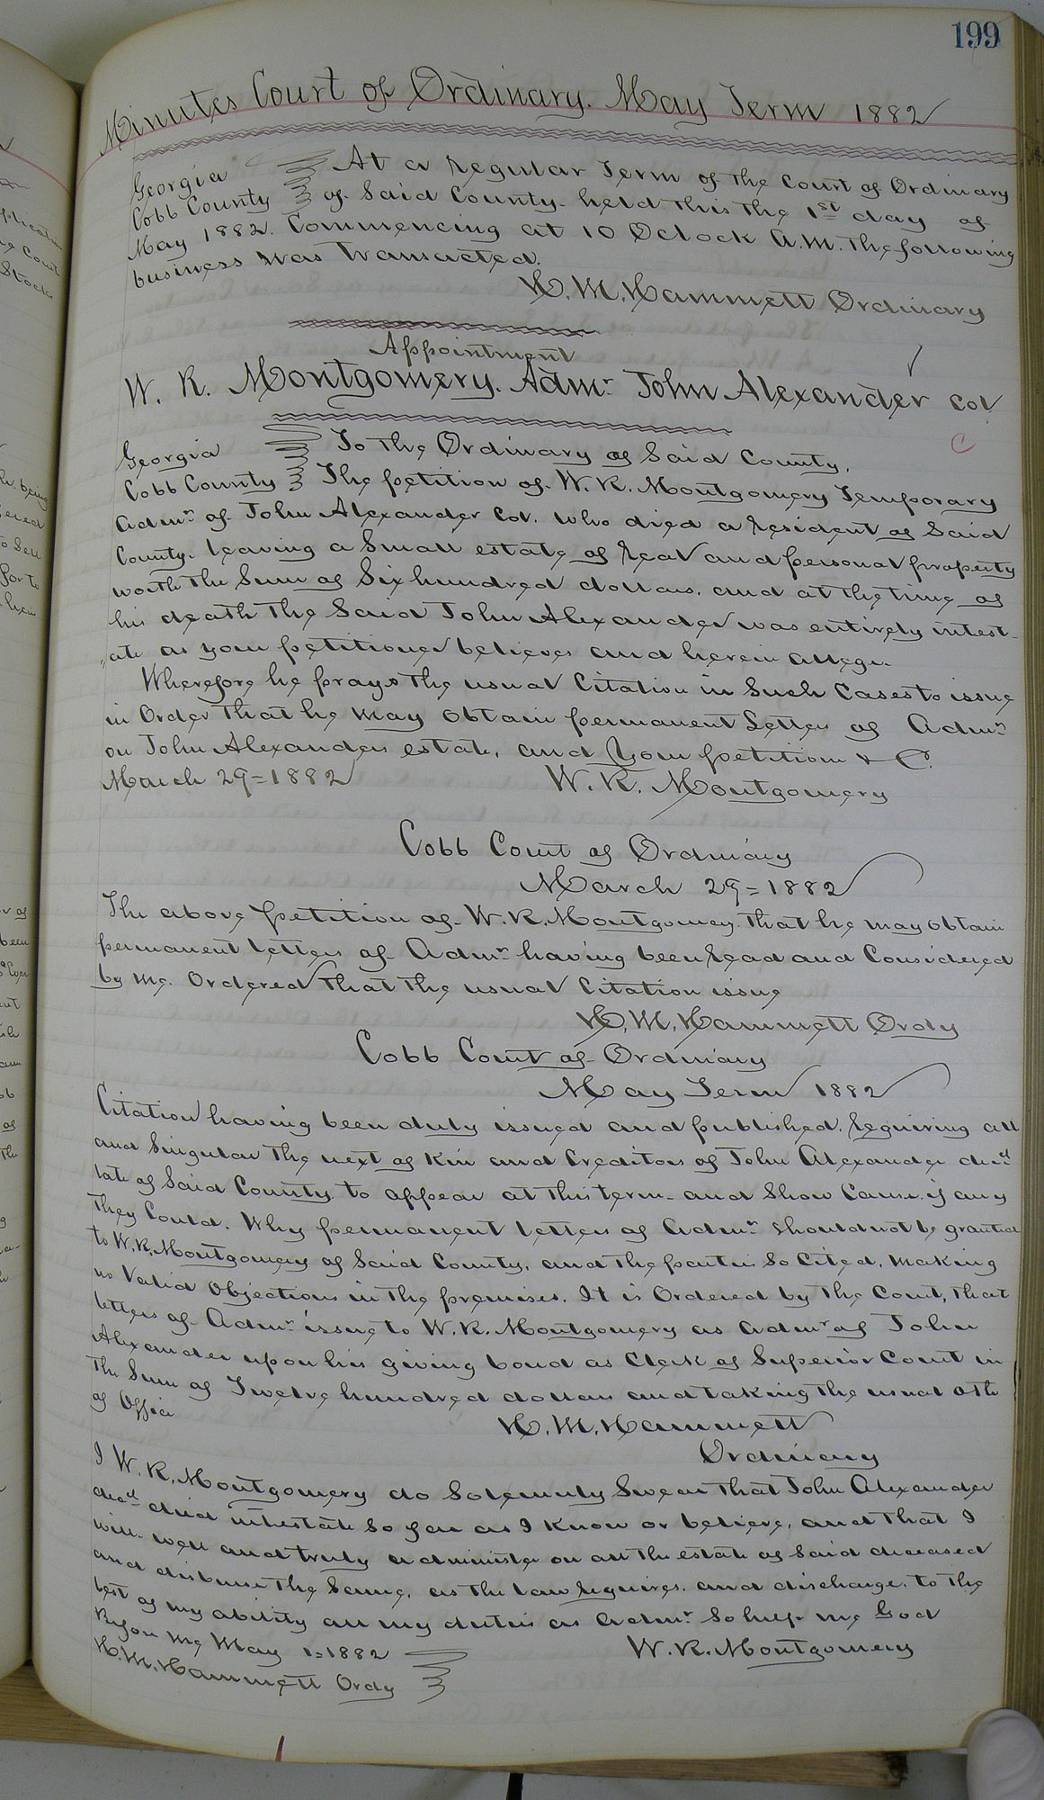 199
Minutes Court of Ordinary. May Term 1882
Georgia At a regular Term of the Court of Ordinary
Cobb County of Said County. held this the 1st day of
May 1882. Commencing at 10 Oclock A.M. the following
business was Transacted.
H. M. Hammett Ordinary
Appointment
W. R. Montgomery. Admr. John Alexander Col
C
Georgia To the Ordinary of Said County.
Cobb County The petition of W. R. Montgomery Temporary
Admr. of John Alexander Col. who died a resident of Said
County. leaving a Small estate of real and personal property
worth the Sum of Six hundred dollars. and at the time of
his death the Said John Alexander was entirely intest-
ate as your petitioner believes and herein alleges.
Wherefore he prays the usual Citation in Such Cases to issue
in Order that he may obtain permanent Letters of Admr.
on John Alexanders estate, and your petitioner & C.
March 29=1882 W. R. Montgomery
Cobb Court of Ordinary
March 29=1882
The above petition of W. R. Montgomery. that he may obtain
permanent letters of Admr. having been read and Considered
by me. Ordered that the usual Citation issue
H. M. Hammett Ordy
Cobb Court of Ordinary
May Term 1882
Citation having been duly issued and published. requiring all
and Singular the next of Kin and Creditors of John Alexander decd
late of Said County to appear at this term. and Show Cause. if any
they Could. Why permanent letters of Admr. Should not be granted
to W. R. Montgomery of Said County, and the parties So Cited, making
no Valid Objections in the premises. It is Ordered by the Court, that
letters of Admr. issue to W. R. Montgomery as Admr. of John
Alexander upon his giving bond as Clerk of Superior Court in
the Sum of Twelve hundred dollars and taking the usual oth
of Office
H. M. Hammett
Ordinary
I W. R. Montgomery do Solemnly Swear that John Alexander
decd died intestate So far as I know or believe, and that I
will well and truly administer on all the estate of Said deceased
and disburse the Same, as the law requires. and discharge. to the
best of my ability all my duties as Admr. So help me God
Before me May 1=1882 W. R. Montgomery
H. M. Hammett Ordy